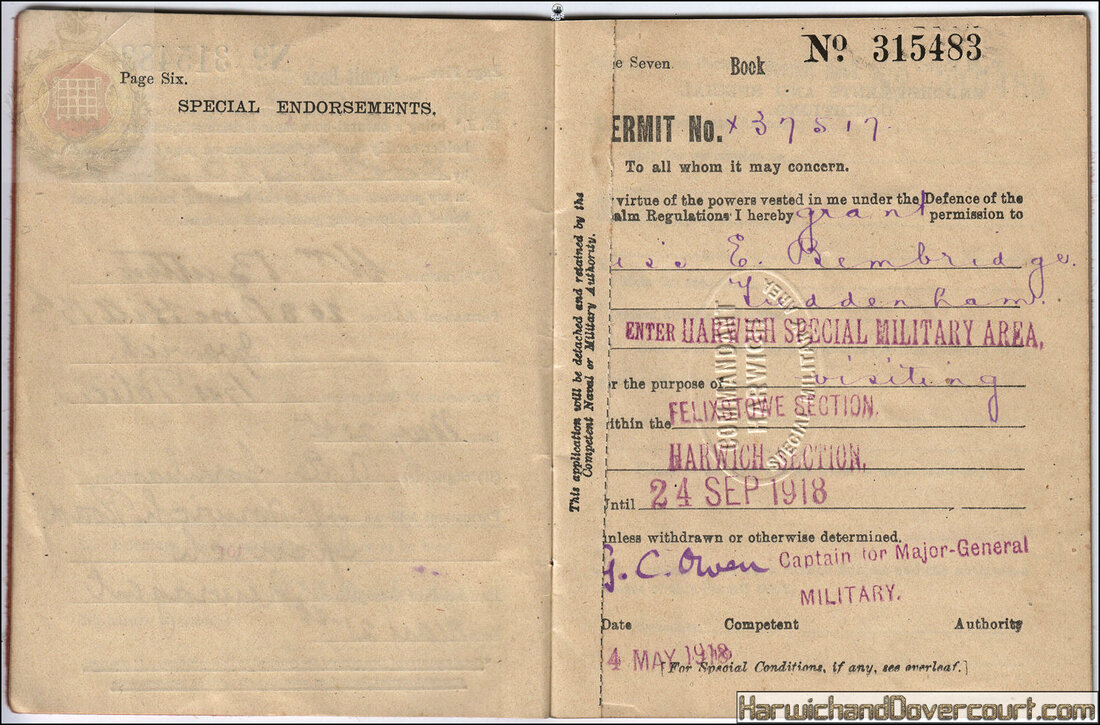 Page Six.
SPECIAL ENDORSEMENTS.
This application will be detached and retained by the
Competent Naval or Military Authority.
No 315483
e Seven.
Book
ERMIT No. x37517
To all whom it may concern.
virtue of the powers vested in me under the Defence of the
alm Regulations I hereby grant permission to
iss E. Bembridge.
Tuddenham.
ENTER HARWICH SPECIAL MILITARY AREA,
r the purpose of visiting
ithin the FELIXSTOWE SECTION.
HARWICH SECTION.
Until 24 SEP 1918
unless withdrawn or otherwise determined.
G. C. Owen Captain for Major-General
MILITARY.
Date Competent Authority
4 MAY 1918
[For Special Conditions, if any, see overleaf.]
COMMANDANT
HARWICH
SPECIAL MILITARY AREA
HarwichandDovercourt.com